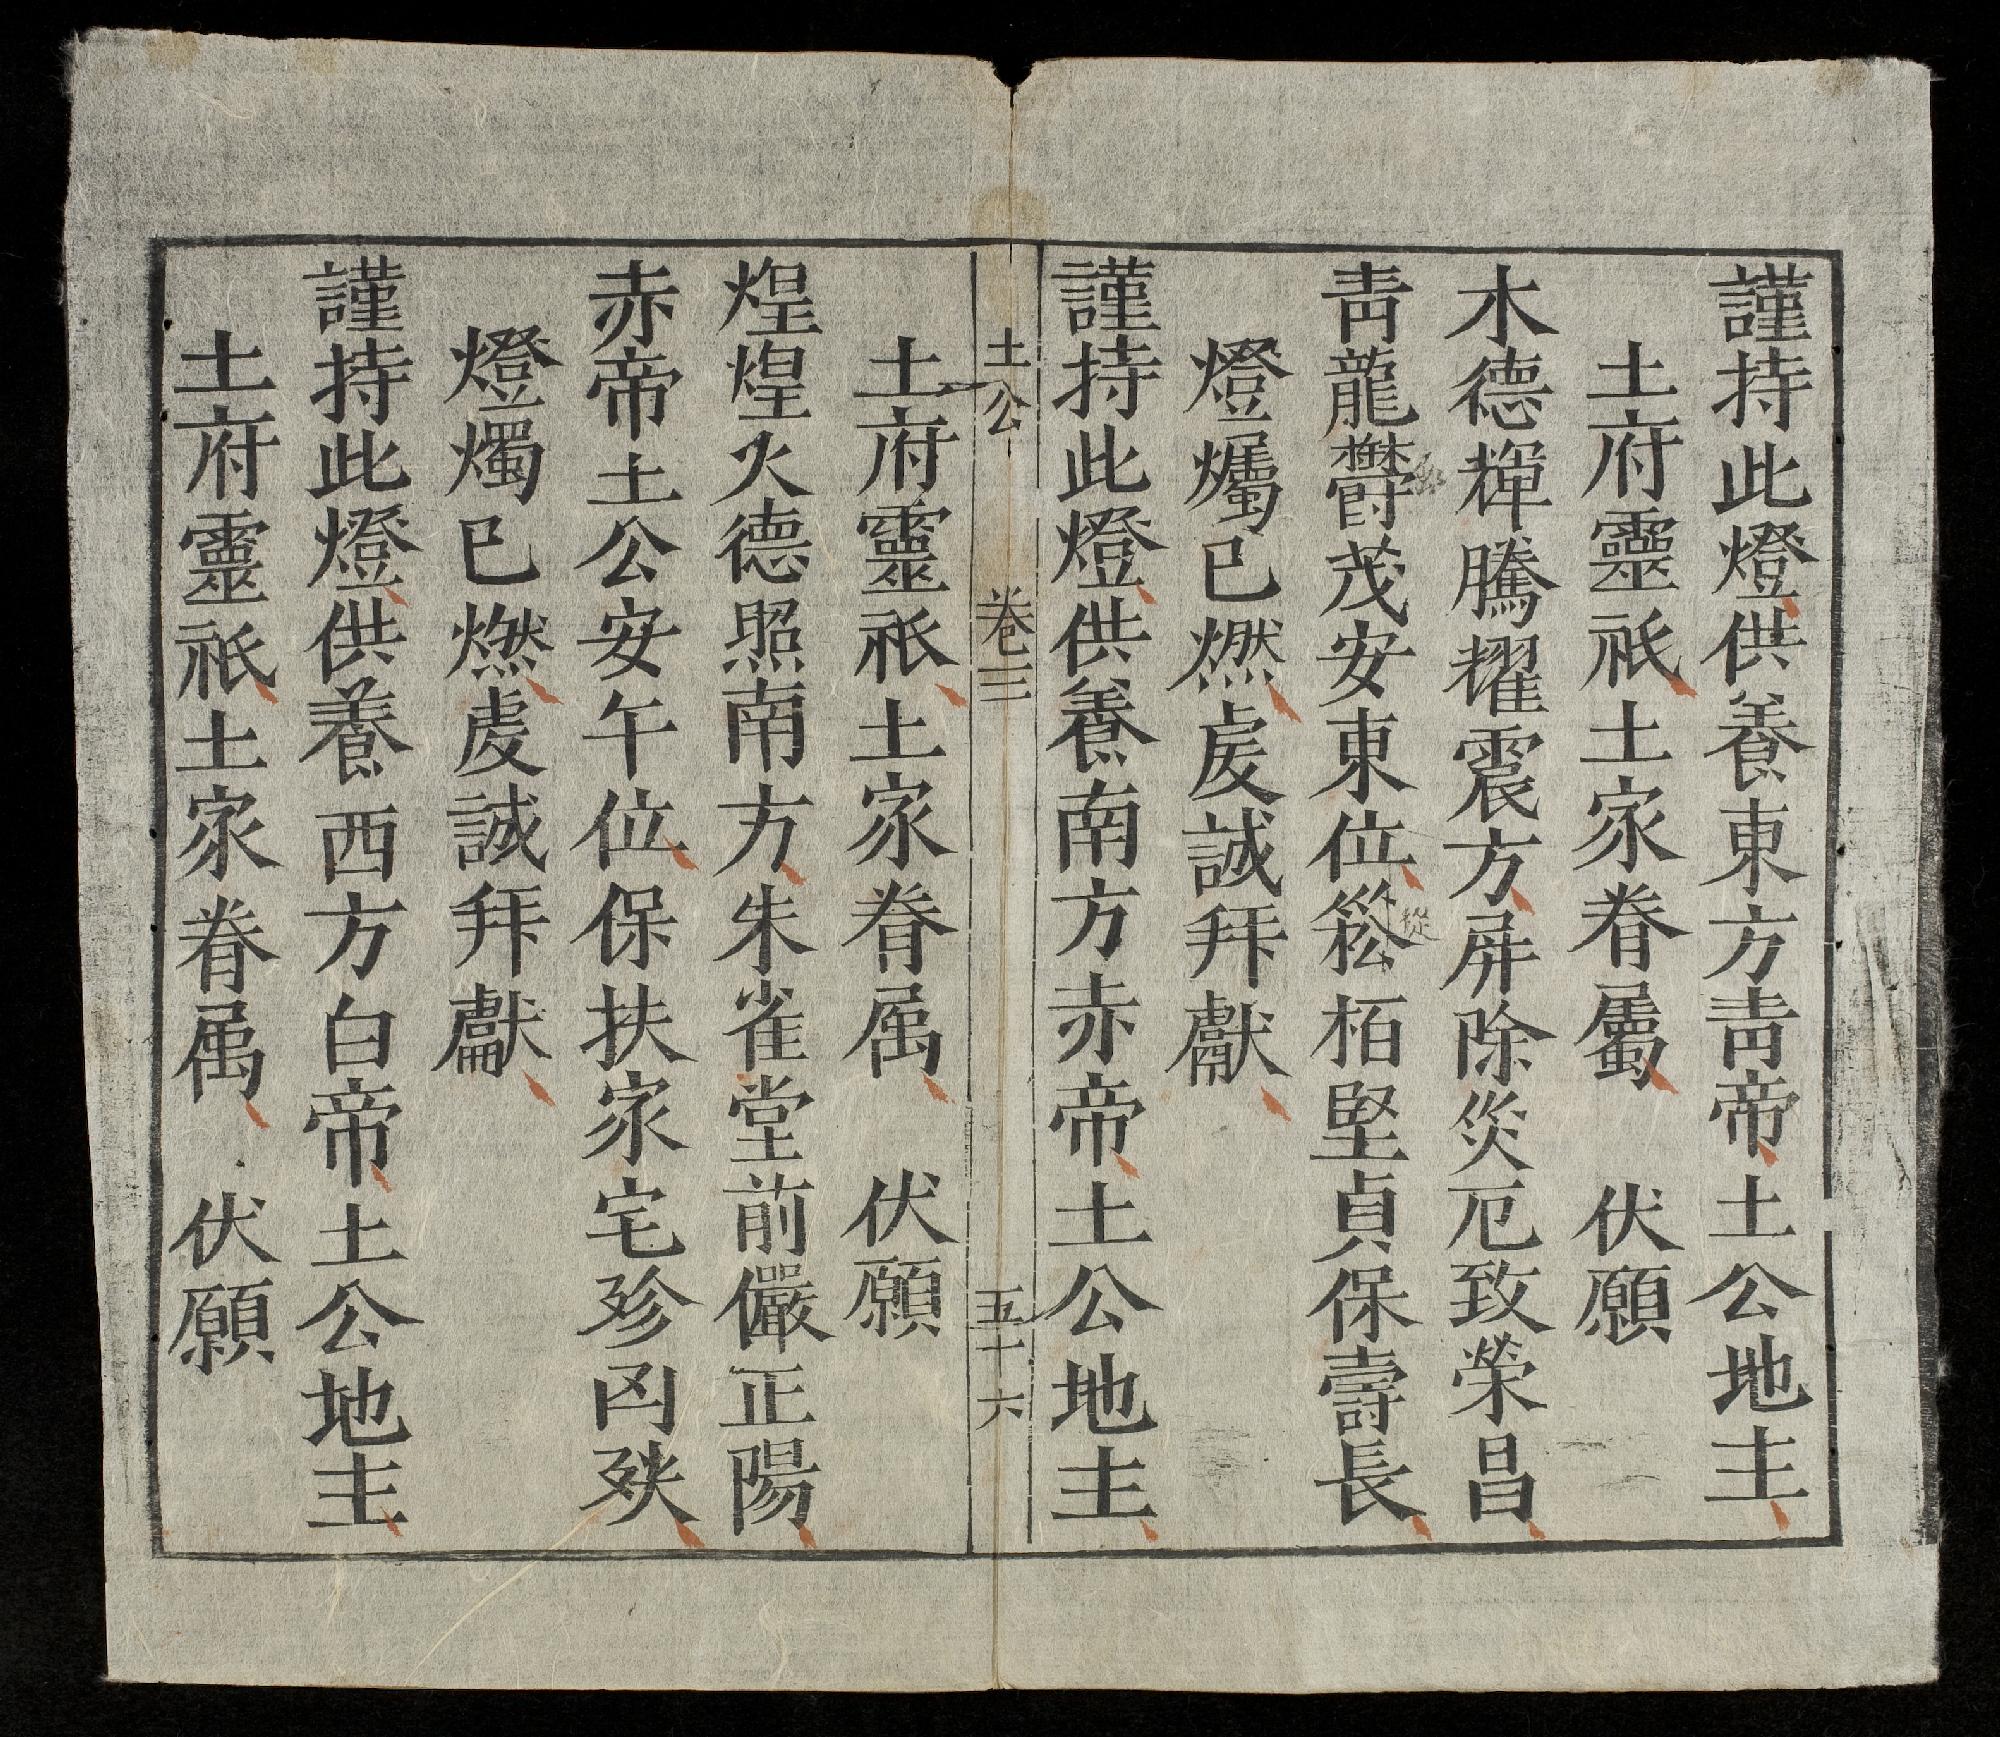 謹持此燈供養東方靑帝土公地主
土府靈祇土家眷屬　伏願
木德輝騰耀震方屏除災厄致榮昌
靑龍欝茂安東位菘栢堅貞保壽長
燈爥已燃虔誠拜獻
謹持此燈供養南方赤帝土公地主
土公　卷三　五十六
土府靈祇土家眷属　伏願
煌煌火德照南方朱雀堂前儼正陽
赤帝土公安午位保扶家宅殄凶殃
燈燭已燃虔誠拜獻
謹持此燈供養西方白帝土公地主
土府靈祇土家眷属　伏願